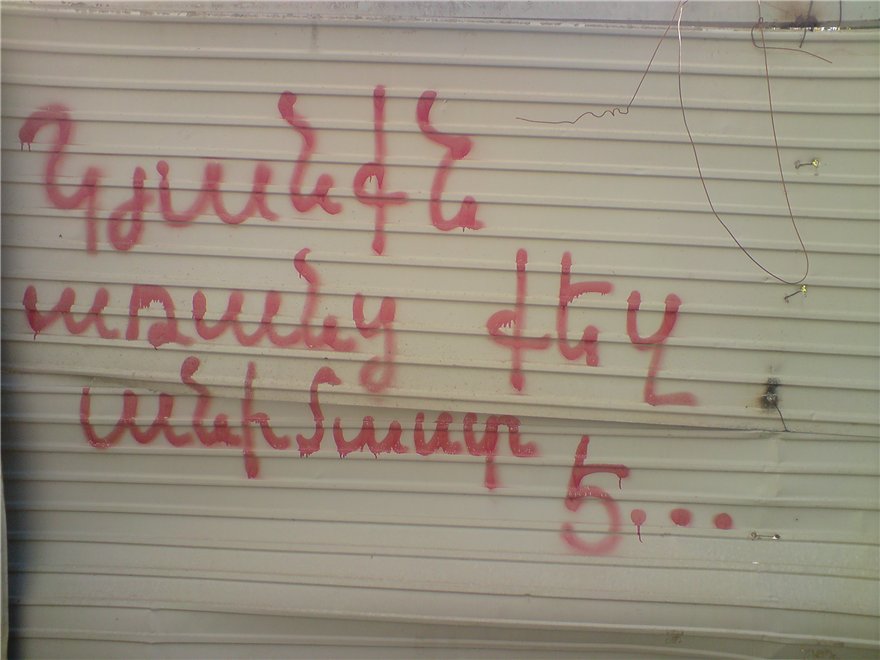 Կյանքն
առանց քեզ
անիմաստ
է...